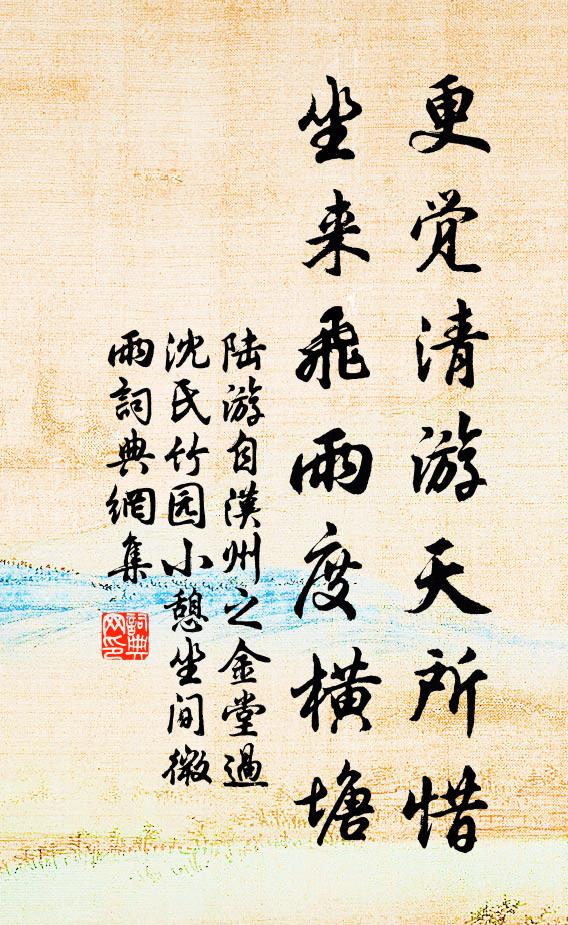 更觉清游天所惜
坐来飛雨度横塘
陆游自漢州之金堂過
沈氏竹园小憩坐间微
雨詞典網集
詞典
网印